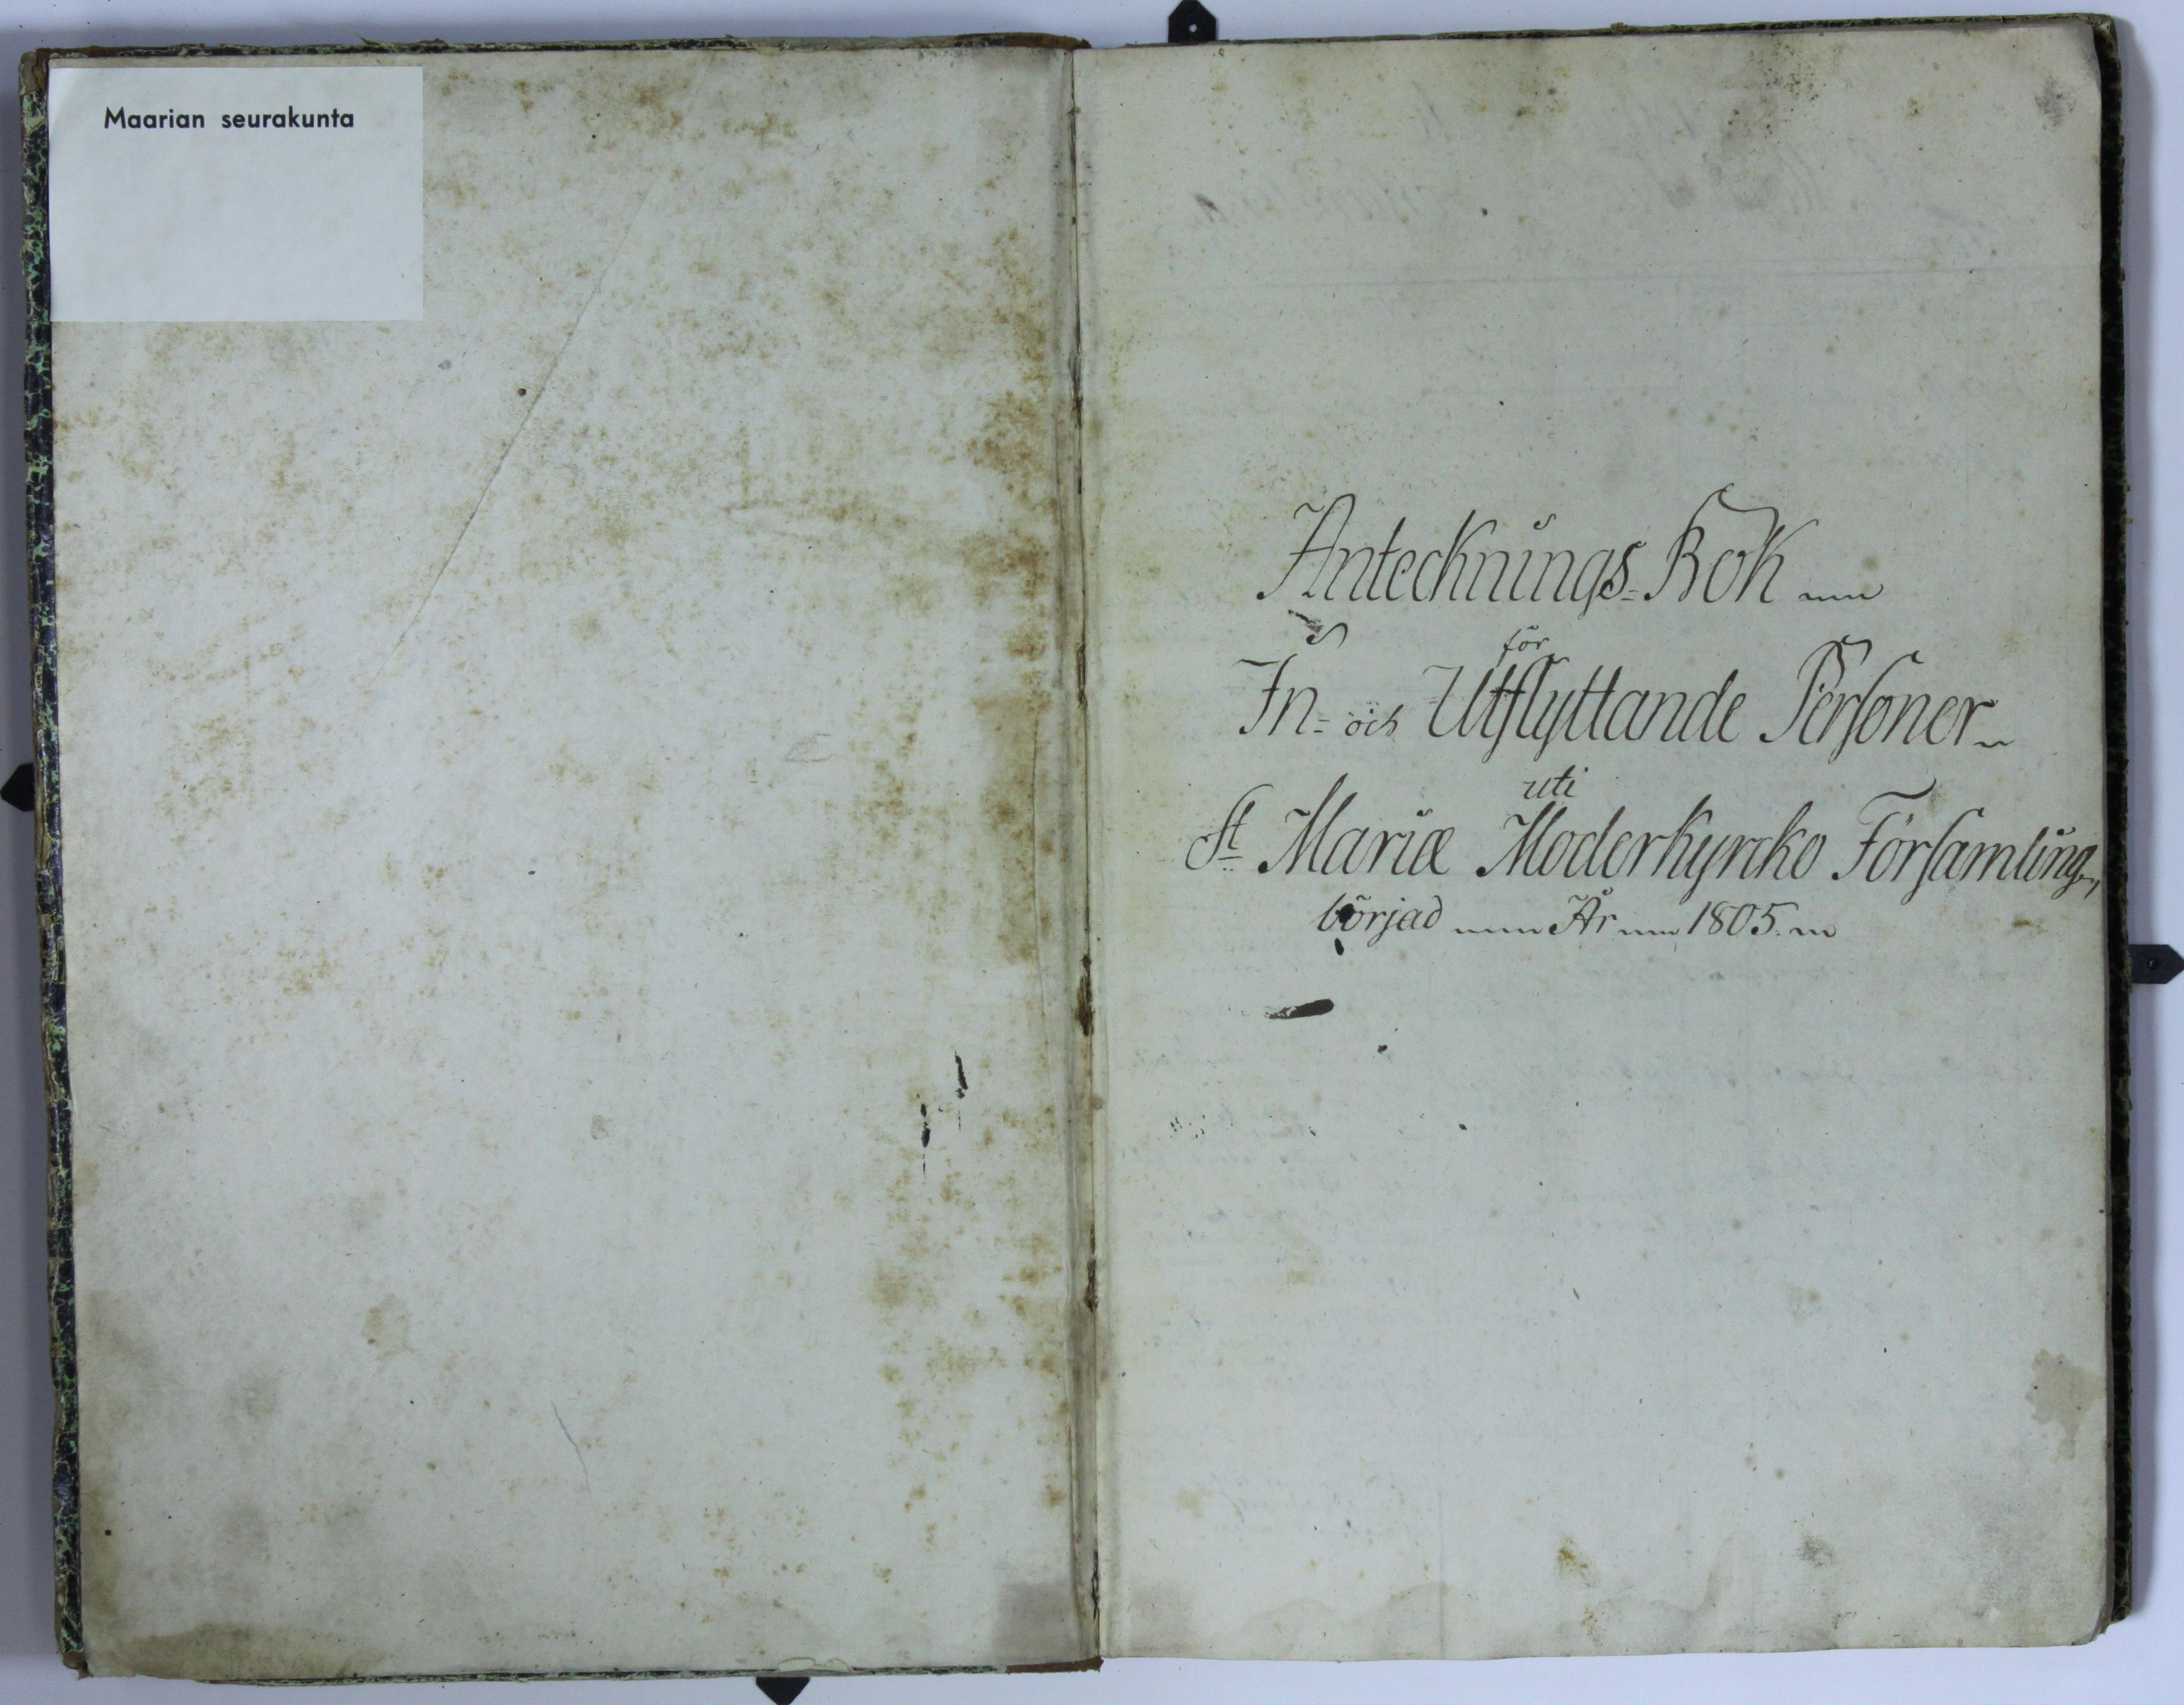 Maarian seurakunta
Antecknings-Bok
för
In- och Utflyttande Personer
uti
St Mariæ Moderkyrcko Församling,
börjad År 1805.